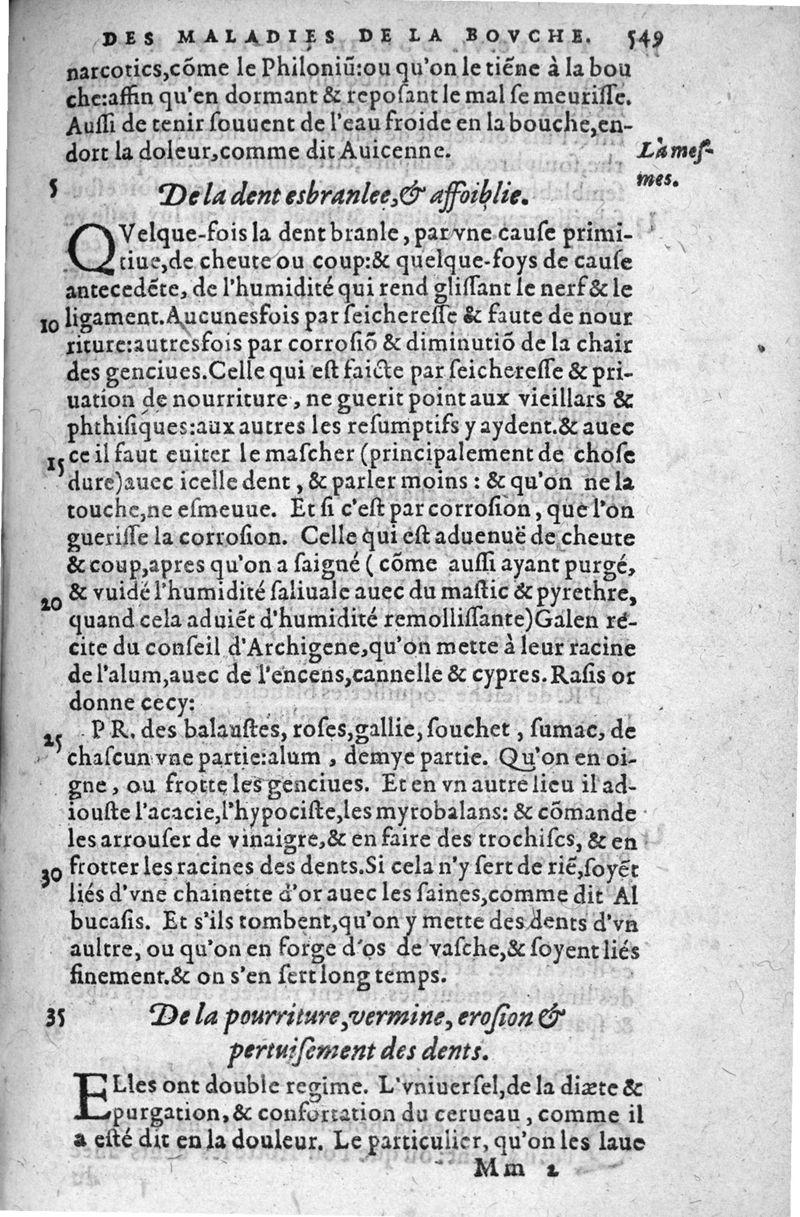 DES MALADIES DE LA BOVCHE. 549
narcotics,cõme le Philoniũ:ou qu'on le tiẽne à la bou
che:affin qu'en dormant & reposant le mal se meurisse.
Aussi de tenir souuent de l'eau froide en la bouche,en-
dort la doleur,comme dit Auicenne.
La mes-
mes.
5 De la dent esbranlee,& affoiblie.
QVelque-fois la dent branle, par vne cause primi-
tiue,de cheute ou coup:& quelque-foys de cause
antecedẽte, de l'humidité qui rend glissant le nerf & le
10 ligament.Aucunesfois par seicheresse & faute de nour
riture:autresfois par corrosiõ & diminutiõ de la chair
des genciues.Celle qui est faicte par seicheresse & pri-
uation de nourriture, ne guerit point aux vieillars &
phthisiques:aux autres les resumptifs y aydent.& auec
15 ce il faut euiter le mascher (principalement de chose
dure)auec icelle dent, & parler moins : & qu'on ne la
touche,ne esmeuue. Et si c'est par corrosion, que l'on
guerisse la corrosion. Celle qui est aduenuë de cheute
& coup,apres qu'on a saigné ( cõme aussi ayant purgé,
20 & vuidé l'humidité saliuale auec du mastic & pyrethre,
quand cela aduiẽt d'humidité remollissante)Galen re-
cite du conseil d'Archigene,qu'on mette à leur racine
de l'alum,auec de l'encens,cannelle & cypres.Rasis or
donne cecy:
25 PR. des balaustes, roses,gallie, souchet, sumac, de
chascun vne partie:alum , demye partie. Qu'on en oi-
gne, ou frotte les genciues. Et en vn autre lieu il ad-
iouste l'acacie,l'hypociste,les myrobalans: & cõmande
les arrouser de vinaigre,& en faire des trochiscs, & en
30 frotter les racines des dents.Si cela n'y sert de riẽ,soyẽt
liés d'vne chainette d'or auec les saines,comme dit Al
bucasis. Et s'ils tombent,qu'on y mette des dents d'vn
aultre, ou qu'on en forge d'os de vasche,& soyent liés
finement.& on s'en sert long temps.
35 De la pourriture,vermine, erosion &
pertuisement des dents.
ELles ont double regime. L'vniuersel,de la diæte &
purgation,& confortation du cerueau, comme il
a esté dit en la douleur. Le particulier, qu'on les laue
Mm 2